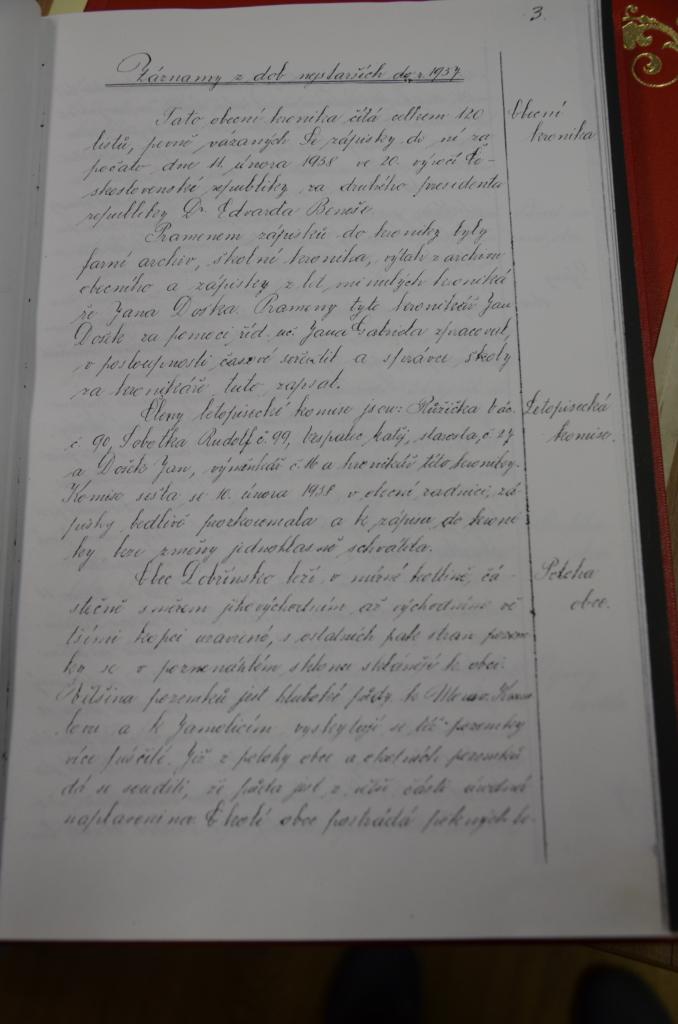 3.
Záznamy z dob nejstarších do r. 1937
Tato obecní kronika čítá celkem 120
listů, pevně vázaných. Se zápisky do ní za
počato dne 11. února 1938 ve 20. výročí Če-
skoslovenské republiky za druhého presidenta
republiky Dr. Edvarda Beneše.
Obecní
kronika
Pramenem zápisků do kroniky byly
farní archiv, školní kronika, výtah z archivu
obecního a zápisky z let minulých kroniká
ře Jana Doška. Prameny tyto kronikář Jan
Došek za pomoci říd. uč. Jana zpracoval,
v posloupnosti časové seředil a správce školy
za kronikáře tuto zapsal.
Členy letopisecké komise jsou: Růžička Vác.
č. 90, Sobotka Rudolf č. 99, Matěj, starosta, č. 27
a Došek Jan, výměnkář č. 16 a kronikář této kroniky.
Komise sešla se 10. února 1938 v obecní radnici, zá-
pisky bedlivě prozkoumala a k zápisu do kroni
ky beze změny jednohlasně schválila.
Letopisecká
komise.
Obec Dobřínsko leží v mírné kotlině, čá-
stečně směrem jihovýchodním až východním vě
tšími kopci uzavřené, s ostatních pak stran pozem
ky se v poznenáhlém sklonu sklánějí k obci.
Většina pozemků jest hluboké půdy, k Morav. Krum
lovu a k Jamolicím vyskytují se též pozemky
více písčité. Již z polohy obce a okolních pozemků
dá se souditi, že půda jest z větší části úrodná
naplavenina. Okolí obce postrádá pěkných le-
Poloha
obce.